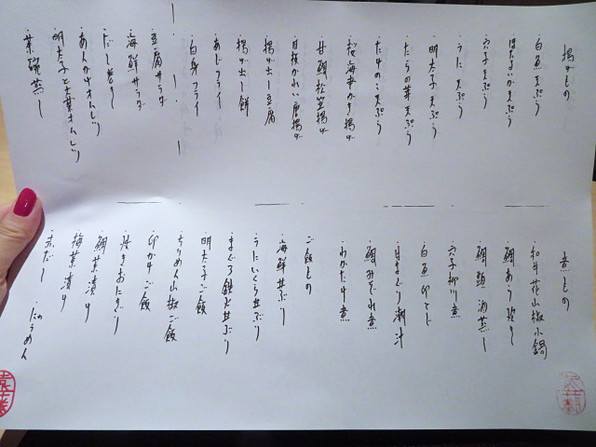 揚げもの
・白魚天ぷら
・ほたるいか天ぷら
・穴子天ぷら
・うに天ぷら
・明太子天ぷら
・たらの芽天ぷら
・たけのこ天ぷら
・桜海老かき揚げ
・甘鯛松笠揚げ
・目板がれい唐揚げ
・揚げ出し豆腐
・揚げ出し餅
・あじフライ
・白身フライ
・豆腐サラダ
・海鮮サラダ
・だし巻り
・あんかけオムレツ
・明太子と大葉オムレツ
・茶碗蒸し
煮もの
・和牛花山椒小鍋
・鯛あら炊き
・鯛頭酒蒸し
・穴子柳川煮
・白魚卵とじ
・はまぐり潮汁
・鯛みぞれ煮
・わかたけ煮
ご飯もの
・海鮮丼ぶり
・うにいくら丼ぶり
・まぐろ鉄火丼ぶり
・明太子ご飯
・ちりめん山椒ご飯
・卵かけご飯
・焼きおにぎり
・鯛茶漬け
・梅茶漬け
・赤だし ・にゅうめん